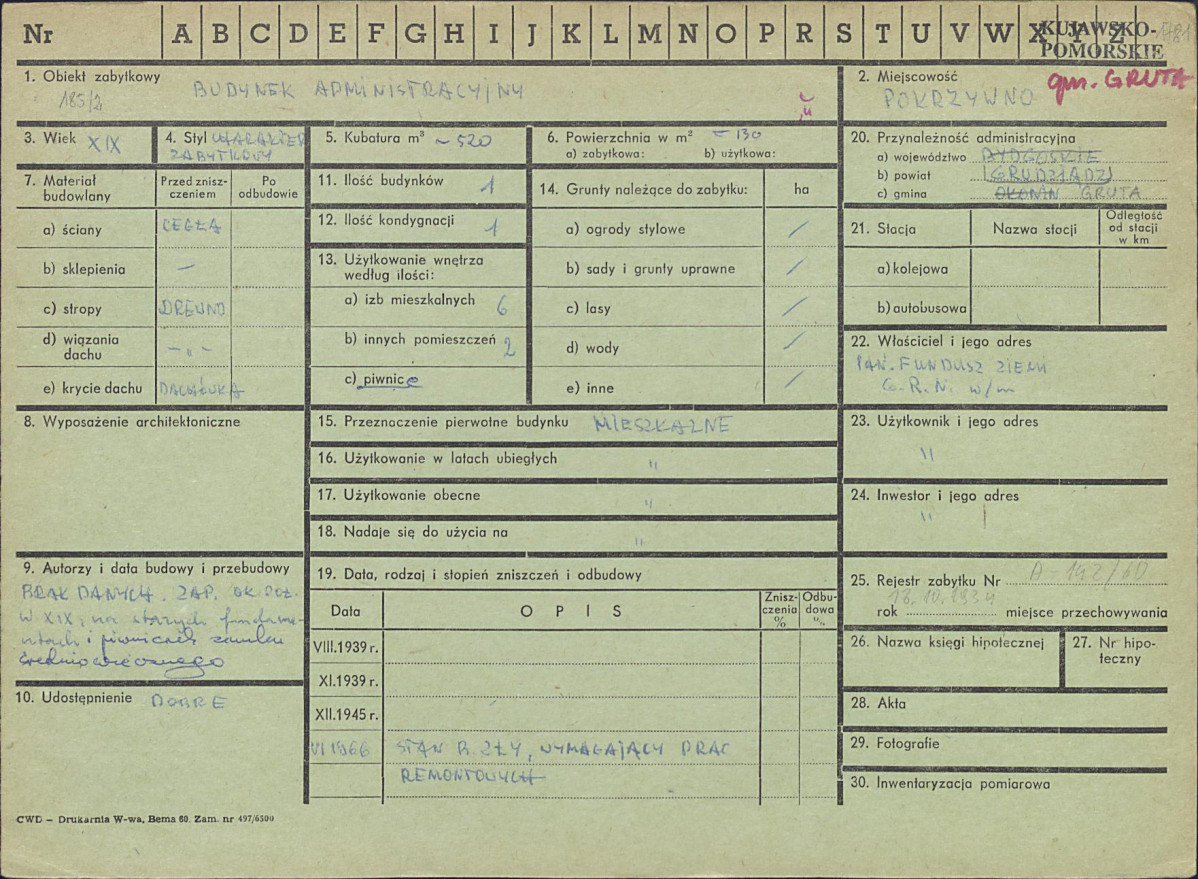 Nr A B C D E F G H I J K L M N O P R S T U V W X Y Z
KUJAWSKO-
POMORSKIE
1. Obiekt zabytkowy
185/2
BUDYNEK ADMINISTRACYJNY
2. Miejscowość
gm. GRUTA
POKRZYWNO
3. Wiek XIX
4. Styl CHARAKTER
ZABYTKOWY
5. Kubatura m³ ~ 520
6. Powierzchnia w m² ~ 130
a) zabytkowa: b) użytkowa:
7. Materiał
budowlany
Przed znisz-
czeniem
Po
odbudowie
a) ściany CEGŁA
b) sklepienia —
c) stropy DREWNO
d) wiązania
dachu — „ —
e) krycie dachu DACHÓWKA
8. Wyposażenie architektoniczne
9. Autorzy i data budowy i przebudowy
BRAK DANYCH. ZAP. OK POŁ.
W XIX, na starych fundame-
ntach i piwnicach zamku
średniowiecznego
10. Udostępnienie DOBRE
11. Ilość budynków 1
12. Ilość kondygnacji 1
13. Użytkowanie wnętrza
według ilości:
a) izb mieszkalnych 6
b) innych pomieszczeń 2
c) piwnice
14. Grunty należące do zabytku: ha
a) ogrody stylowe /
b) sady i grunty uprawne /
c) lasy /
d) wody /
e) inne /
15. Przeznaczenie pierwotne budynku MIESZKALNE
16. Użytkowanie w latach ubiegłych „
17. Użytkowanie obecne „
18. Nadaje się do użycia na „
19. Data, rodzaj i stopień zniszczeń i odbudowy
Data OPIS
Znisz-
czenia
%
Odbu-
dowa
%
VIII.1939 r.
XI.1939 r.
XII.1945 r.
VI 1966 STAN B. ZŁY, WYMAGAJĄCY PRAC
REMONTOWYCH
20. Przynależność administracyjna
a) województwo BYDGOSKIE
b) powiat (GRUDZIĄDZ)
c) gmina OKONIN GRUTA
21. Stacja Nazwa stacji
Odległość
od stacji
w km
a) kolejowa
b) autobusowa
22. Właściciel i jego adres
PAŃ. FUNDUSZ ZIEMI
G.R.N. w/m
23. Użytkownik i jego adres
„
24. Inwestor i jego adres
„
25. Rejestr zabytku Nr A-192/60
rok 18.10.1934 miejsce przechowywania
26. Nazwa księgi hipotecznej
27. Nr hipo-
teczny
28. Akta
29. Fotografie
30. Inwentaryzacja pomiarowa
CWD – Drukarnia W-wa, Bema 60. Zam. nr 497/6500